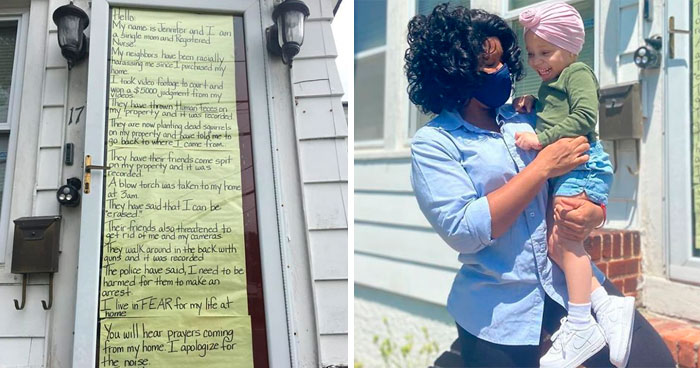 Hello.
My name is Jennifer and I am
a single mom and Registered
Nurse.
My neighbors have been racially
harassing me since I purchased my
home.
I took video footage to court and
won a $5000 judgment from my
videos.
They have thrown Human feces on
my property and it was recorded.
They are now planting dead squirrels
on my property and have told me to
go back to where I came from.
They have their friends come spit
on my property and it was
recorded.
A blow torch was taken to my home
at 3am.
They have said that I can be
"erased".
Their friends also threatened to
get rid of me and my cameras.
They walk around in the back with
guns and it was recorded
The police have said, I need to be
harmed for them to make an
arrest.
I live in FEAR for my life at
home
You will hear prayers coming
from my home. I apologize for
the noise.
17